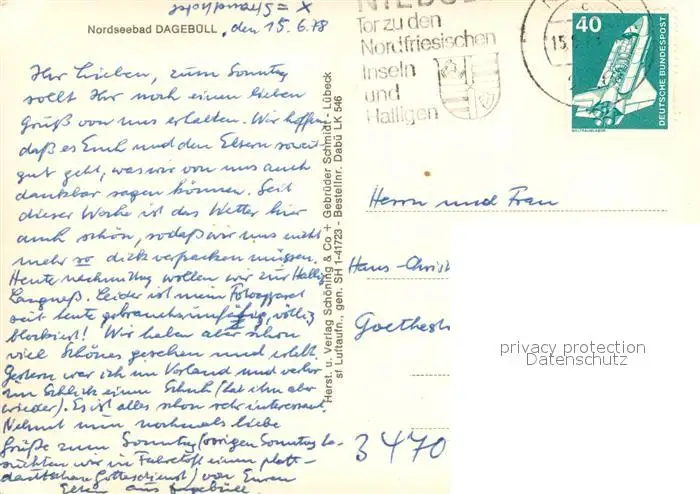 x = Strandhotel
Nordseebad DAGEBÜLL, den 15.6.78
Ihr Lieben, zum Sonntag
sollt Ihr noch einen lieben
Gruß von uns erhalten. Wir hoffen
daß es Euch und den Eltern soweit
gut geht, was wir von uns auch
dankbar sagen können. Seit
dieser Woche ist das Wetter hier
auch schön, sodaß wir uns nicht
mehr so dick verpacken müssen.
Heute nachmittag wollen wir zur Hallig
Langneß. Leider ist mein Fotoapparat
seit heute gebrauchsunfähig, völlig
blockiert! Wir haben aber schon
viel Schönes gesehen und erlebt.
Gestern war ich im Vorland und verlor
im Schlick einen Schuh (hat ihn aber
wieder). Es ist alles schon sehr interessant.
Nehmt nun nochmals liebe
Grüße zum Sonntag (vorigen Sonntag be-
suchten wir in Fahretoft einen platt-
deutschen Gottesdienst) von Euren
Eltern aus Dagebüll.
Herst. u. Verlag Schöning & Co + Gebrüder Schmidt - Lübeck
sf Luftaufn., gen. SH 1-41723 - Bestellnr. Dabü LK 546
Tor zu den
Nordfriesischen
Inseln
und
Halligen
40
DEUTSCHE BUNDESPOST
WELTRAUMLABOR
Herrn und Frau
Hans-Christ
Goethestr
3470
privacy protection
Datenschutz